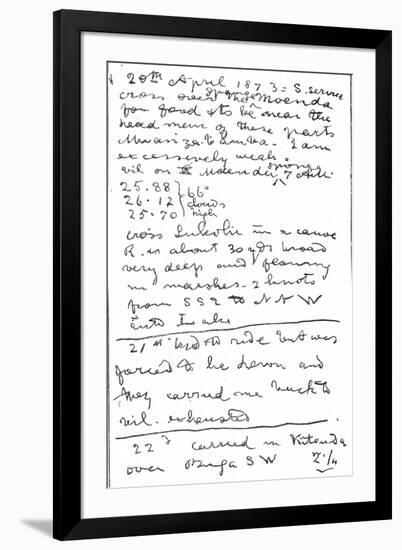 20th April 1873 = S. service
cross over the sponge Moenda
for food & to be near the
head men of these parts
Moanzabamba. I am
excessively weak
vil on Moenda sponge 7 A.M.
25.88 } 66°
26.12 } clouds
25.70 } high
cross Lokulu in a canoe
R. is about 30 yds broad
very deep and flowing
in marshes - 2 knots
from SSE to NNW
into Lake
21st tried to ride but was
forced to lie down and
they carried me back to
vil. exhausted
22d carried in Kitanda
over Buga S W 2 1/4